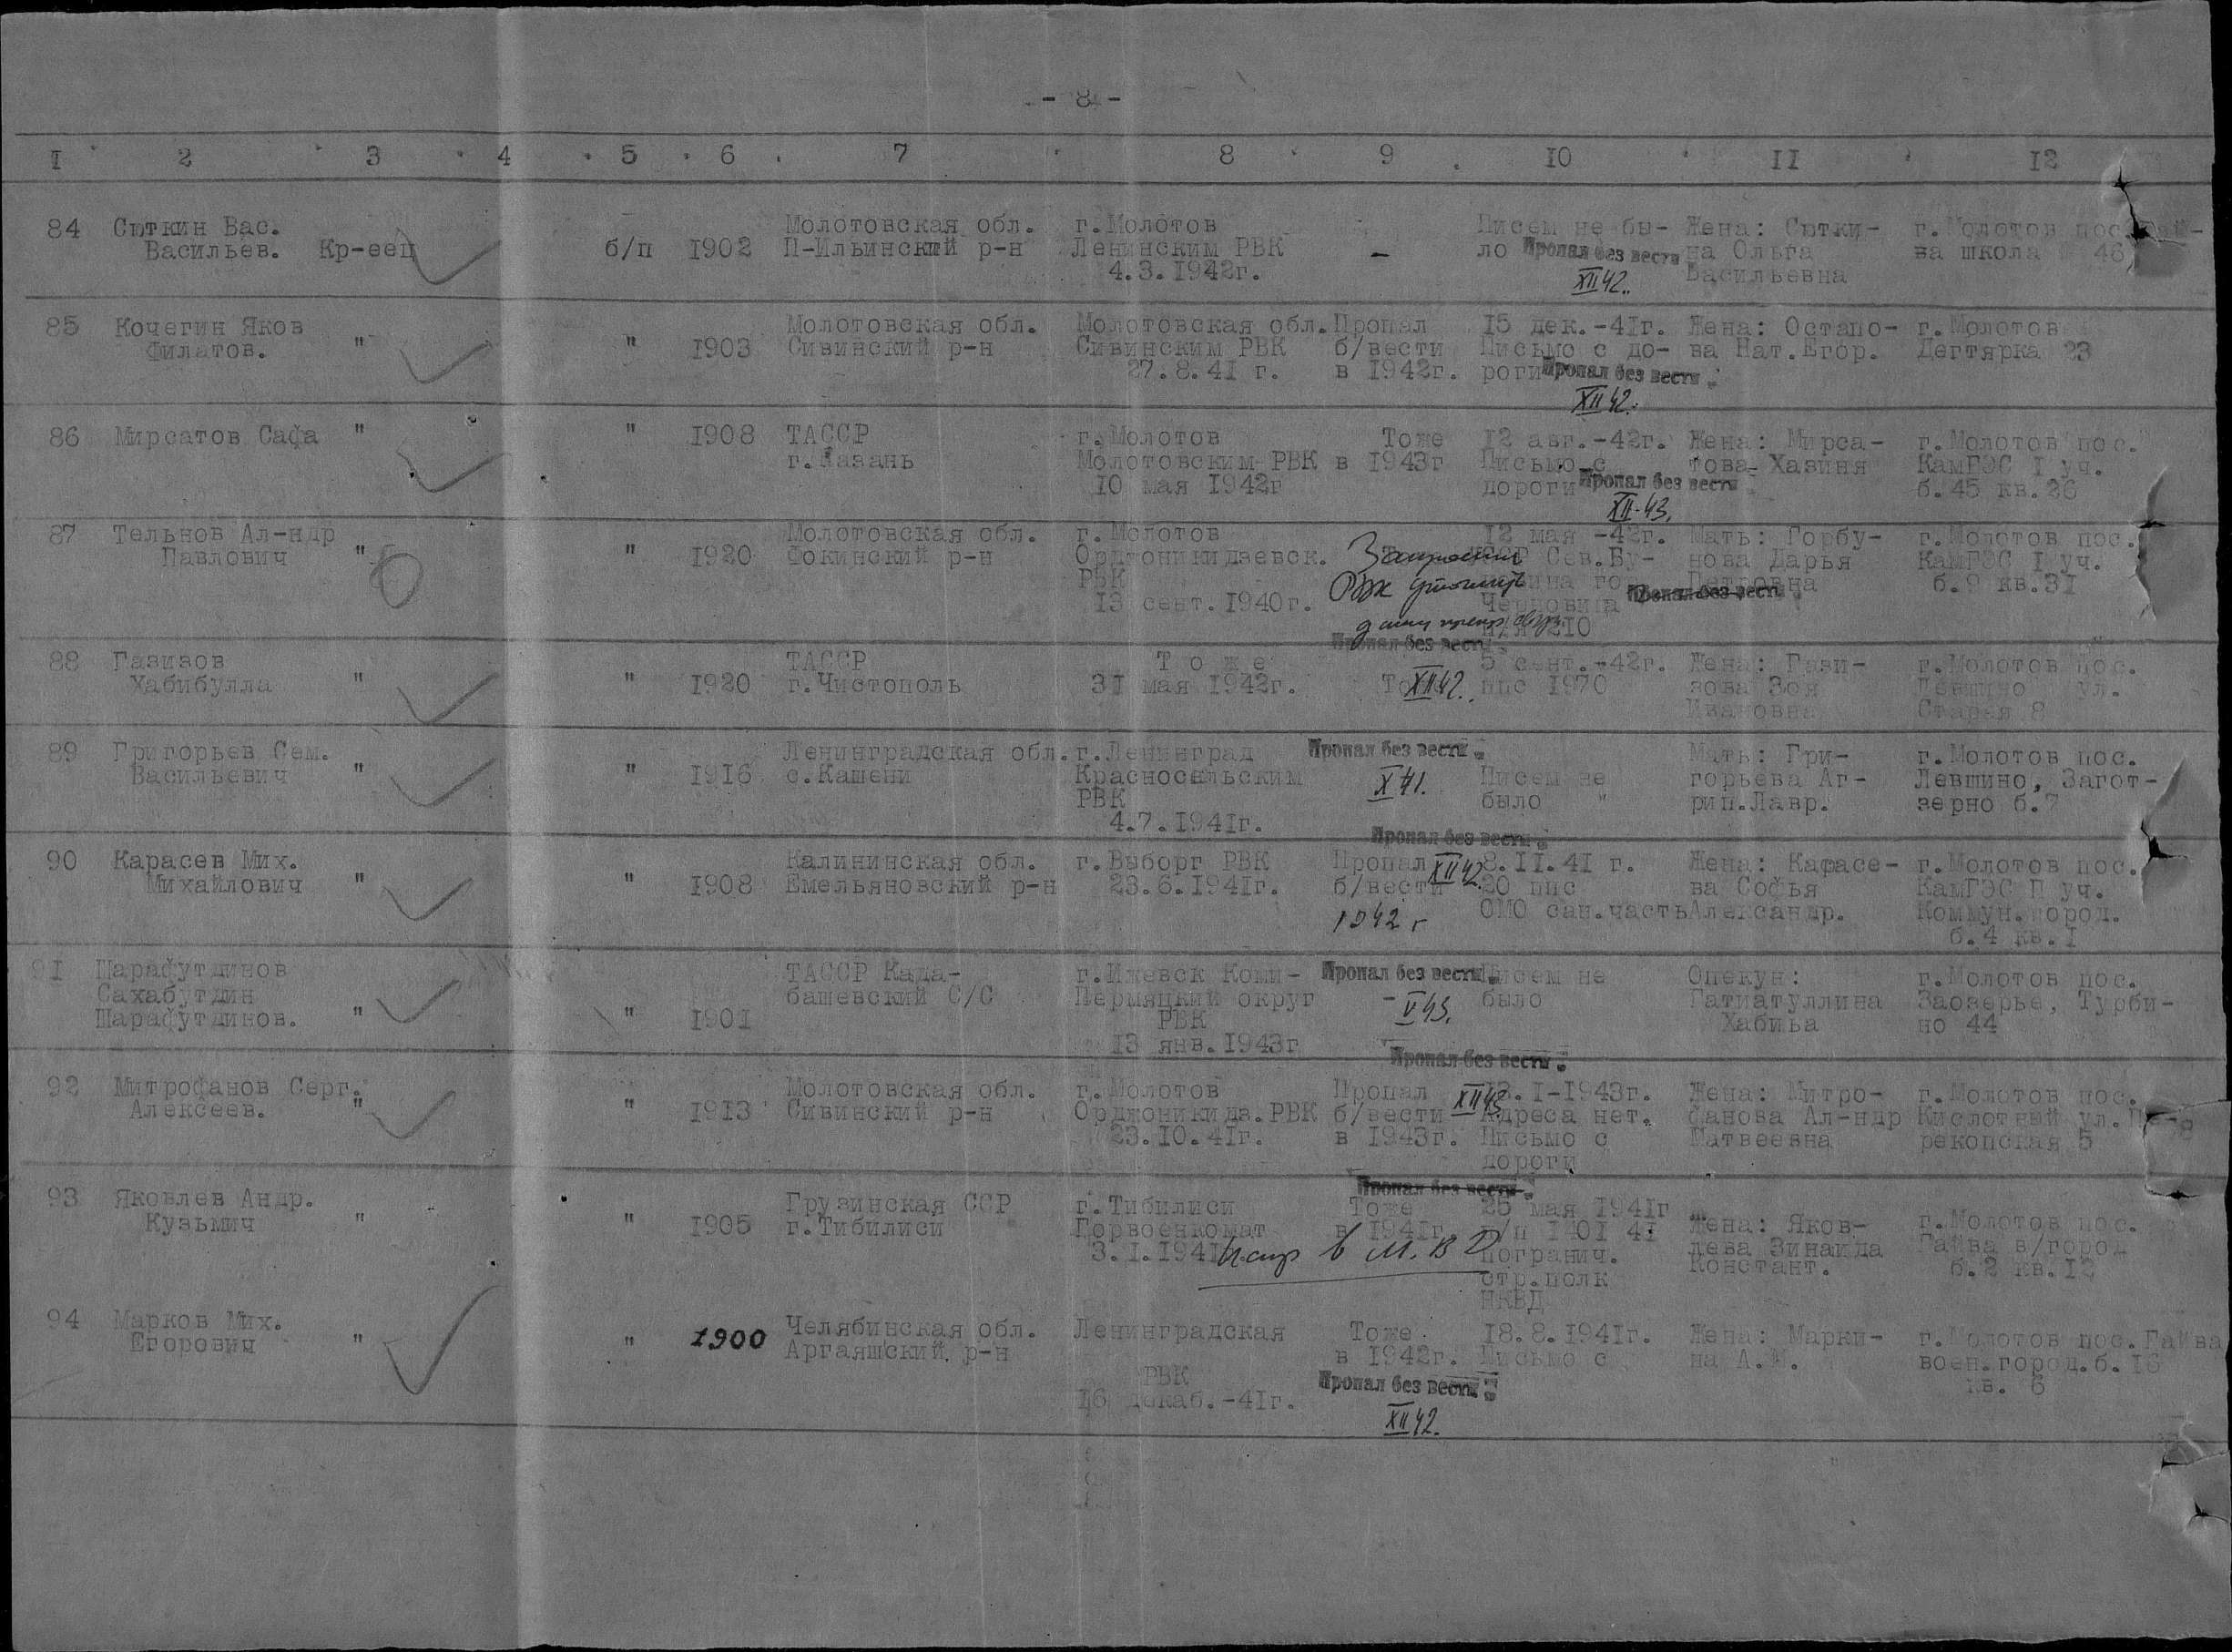 - 8 -
1 2 3 4 5 6 7 8 9 10 11 12
84 Сюткин Вас. Васильев. Кр-еец б/п 1902
Молотовская обл.
П-Ильинский р-н
г.Молотов
Ленинским РВК
4.3.1942г.
-
Писем не бы-
ло Пропал без вести
XII 42.
Жена: Сютки-
на Ольга
Васильевна
г.Молотов пос.
ва школа 46
85 Кочегин Яков
Филатов. " " 1903
Молотовская обл.
Сивинский р-н
Молотовская обл.
Сивинским РВК
27.8.41 г.
Пропал
б/вести
в 1942г.
15 дек.-41г.
Письмо с до-
роги Пропал без вести
XII 42.
Жена: Остапо-
ва Нат.Егор.
г.Молотов
Дегтярка 23
86 Мирсатов Сафа " " 1908
ТАССР
г.Казань
г.Молотов
Молотовским РВК
10 мая 1942г
Тоже
в 1943г
12 авг.-42г.
Письмо с
дороги Пропал без вести
XII-43.
Жена: Мирса-
това Хазиня
г.Молотов пос.
КамГЭС I уч.
б.45 кв.26
87 Тельнов Ал-ндр
Павлович " " 1920
Молотовская обл.
Фокинский р-н
г.Молотов
Орджоникидзевск.
РВК
13 сент.1940г.
РВК
12 мая -42г.
Сев.Бу-
Пропал без вести
Мать: Горбу-
нова Дарья
Петровна
г.Молотов пос.
КамГЭС I уч.
б.9 кв.31
88 Газизов
Хабибулла " " 1920
ТАССР
г.Чистополь
Т о ж е
31 мая 1942г.
Пропал без вести
XII 42.
5 сент.-42г.
ппс 1970
Жена: Гази-
зова Зоя
Ивановна
г.Молотов пос.
Левшино ул.
Старая 8
89 Григорьев Сем.
Васильевич " " 1916
Ленинградская обл.
с.Кашени
г.Ленинград
Красносельским
РВК
4.7.1941г.
Пропал без вести
X 41.
Писем не
было "
Мать: Гри-
горьева Аг-
рип.Лавр.
г.Молотов пос.
Левшино, Загот-
зерно б.7
90 Карасев Мих.
Михайлович " " 1908
Калининская обл.
Емельяновский р-н
г.Выборг РВК
23.6.1941г.
Пропал без вести
XII 42.
Пропал
б/вести
1942 г
8.11.41 г.
20 ппс
ОМО сан.часть
Жена: Карасе-
ва Софья
Александр.
г.Молотов пос.
КамГЭС П уч.
Коммун.город.
б.4 кв.1
91 Шарафутдинов
Сахабутдин
Шарафутдинов. " " 1901
ТАССР Када-
башевский С/С
г.Ижевск Коми-
Пермяцкий округ
РВК
13 янв.1943г
Пропал без вести
- V 43.
Писем не
было
Опекун:
Гатиатуллина
Хабиба
г.Молотов пос.
Заозерье, Турби-
но 44
92 Митрофанов Серг.
Алексеев. " " 1913
Молотовская обл.
Сивинский р-н
г.Молотов
Орджоникидз.РВК
23.10.41г.
Пропал без вести
XII 43.
Пропал
б/вести
в 1943г.
12.1-1943г.
Адреса нет.
Письмо с
дороги
Жена: Митро-
фанова Ал-ндр
Матвеевна
г.Молотов пос.
Кислотный ул.Пе-
рекопская 5
93 Яковлев Андр.
Кузьмич " " 1905
Грузинская ССР
г.Тибилиси
г.Тибилиси
Горвоенкомат
3.1.1941
Пропал без вести
Тоже
в 1941г.
в М.В.D
25 мая 1941г
п/п 1101 41
погранич.
стр.полк
НКВД
Жена: Яков-
лева Зинаида
Констант.
г.Молотов пос.
Гайва в/город
б.2 кв.12
94 Марков Мих.
Егорович " " 1900
Челябинская обл.
Аргаяшский р-н
Ленинградская
РВК
16 декаб.-41г.
Тоже
в 1942г.
Пропал без вести
XII 42.
18.8.1941г.
Письмо с
Жена: Марки-
на А.М.
г.Молотов пос.Гайва
воен.город.б.16
кв. 6